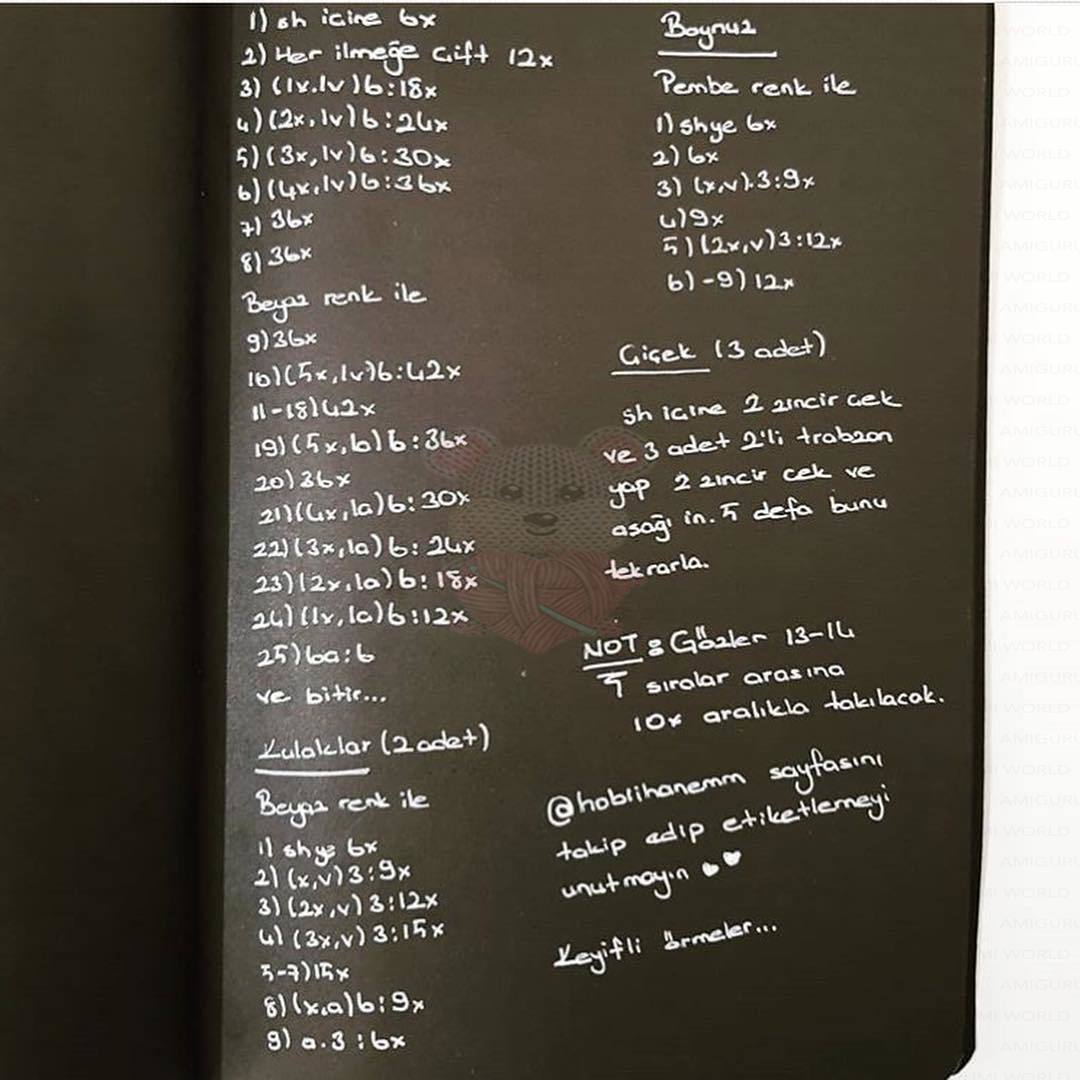 1) sh icine 6x
2) Her ilmeğe Cift 12x
3) (1x,1v)6:18x
4) (2x,1v)6:24x
5) (3x,1v)6:30x
6) (4x,1v)6:36x
7) 36x
8) 36x
Beyaz renk ile
9) 36x
10) (5x,1v)6:42x
11-18) 42x
19) (5x,b)6:36x
20) 36x
21) (4x,1a)6:30x
22) (3x,1a)6:24x
23) (2x,1a)6:18x
24) (1x,1a)6:12x
25) 6a:6
ve bitir...
Kulaklar (2 adet)
Beyaz renk ile
1) shye 6x
2) (x,v)3:9x
3) (2x,v)3:12x
4) (3x,v)3:15x
5-7) 15x
8) (x,a)6:9x
9) a.3:6x
Boynuz
Pembe renk ile
1) shye 6x
2) 6x
3) (x,v).3:9x
4) 9x
5) (2x,v)3:12x
6)-9) 12x
Çiçek (3 adet)
sh icine 2 zincir cek
ve 3 adet 2'li trabzan
yap 2 zincir cek ve
asağı in. 5 defa bunu
tekrarla.
NOT: Gözler 13-14
sıralar arasına
10x aralıkla takılacak.
@hobiihanemm sayfasını
takip edip etiketlemeyi
unutmayın
Keyifli örmeler...
AMIGURUMI WORLD